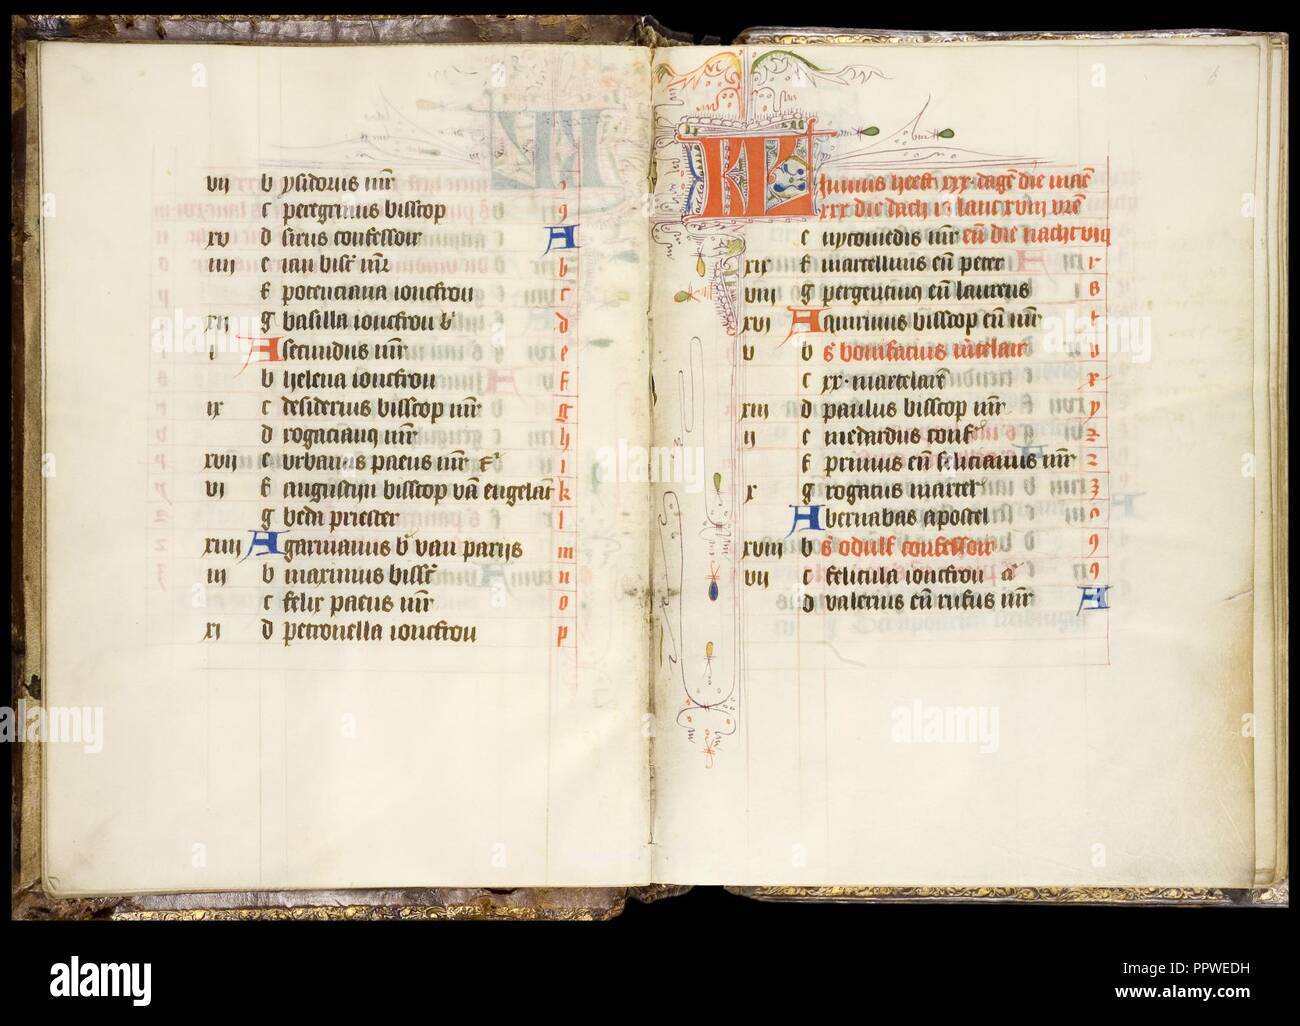 vii b ysidorus mr̄
c peregrinus bisscop 9
xv d sirus confessoir A
iiii e ian bisc̄ mr̄ b
f potenciana ioncfrou c
xii g basilla ioncfrou d
i A secundus mr̄ e
b helena ioncfrou f
ix c desiderius bisscop mr̄ g
d rogacianꝯ mr̄ h
xvii e urbanus paeus mr̄ i
vi f augustijn bisscop vā engelāt k
g beda priester l
xiiii A garmanus b̄ van parijs m
iii b maximus bissc̄ n
c felix paeus mr̄ o
xi d petronella ioncfrou p
6
KL Iunius heeft xxx·dagē die maē
xxx die dach is lanc xviii vrē
e nycomedis mr̄ eñ die nacht vi q
xix f marcellinus eñ peter r
viii g pergentinꝯ eñ laurens s
xvi A quirinus bisscop eñ mr̄ t
v b s̄ bonifacius v
c xx·martelarē x
xiii d paulus bisscop mr̄ y
ii e medardus conf̄ z
f primus eñ felicianus mr̄ 2
x g rogatus martel̄ 3
A bernabas apostel
xviii b s̄ odulf confessoir 9
vii c felicula ioncfrou 9
d valerius eñ rufus mr̄ A
alamy
alamy
Image ID: PPWEDH
www.alamy.com